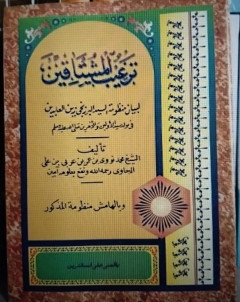 ترغيب المشتاقين
لبيان منظومة السيد البرزنجي زين العابدين
في مولد سيد الأولين والآخرين صلى الله عليه وسلم
تأليف
الشيخ محمد نووي بن عمر بن عربي بن علي
الجاوي رحمه الله ونفع بعلومه آمين
وبالهامش منظومة المذكور